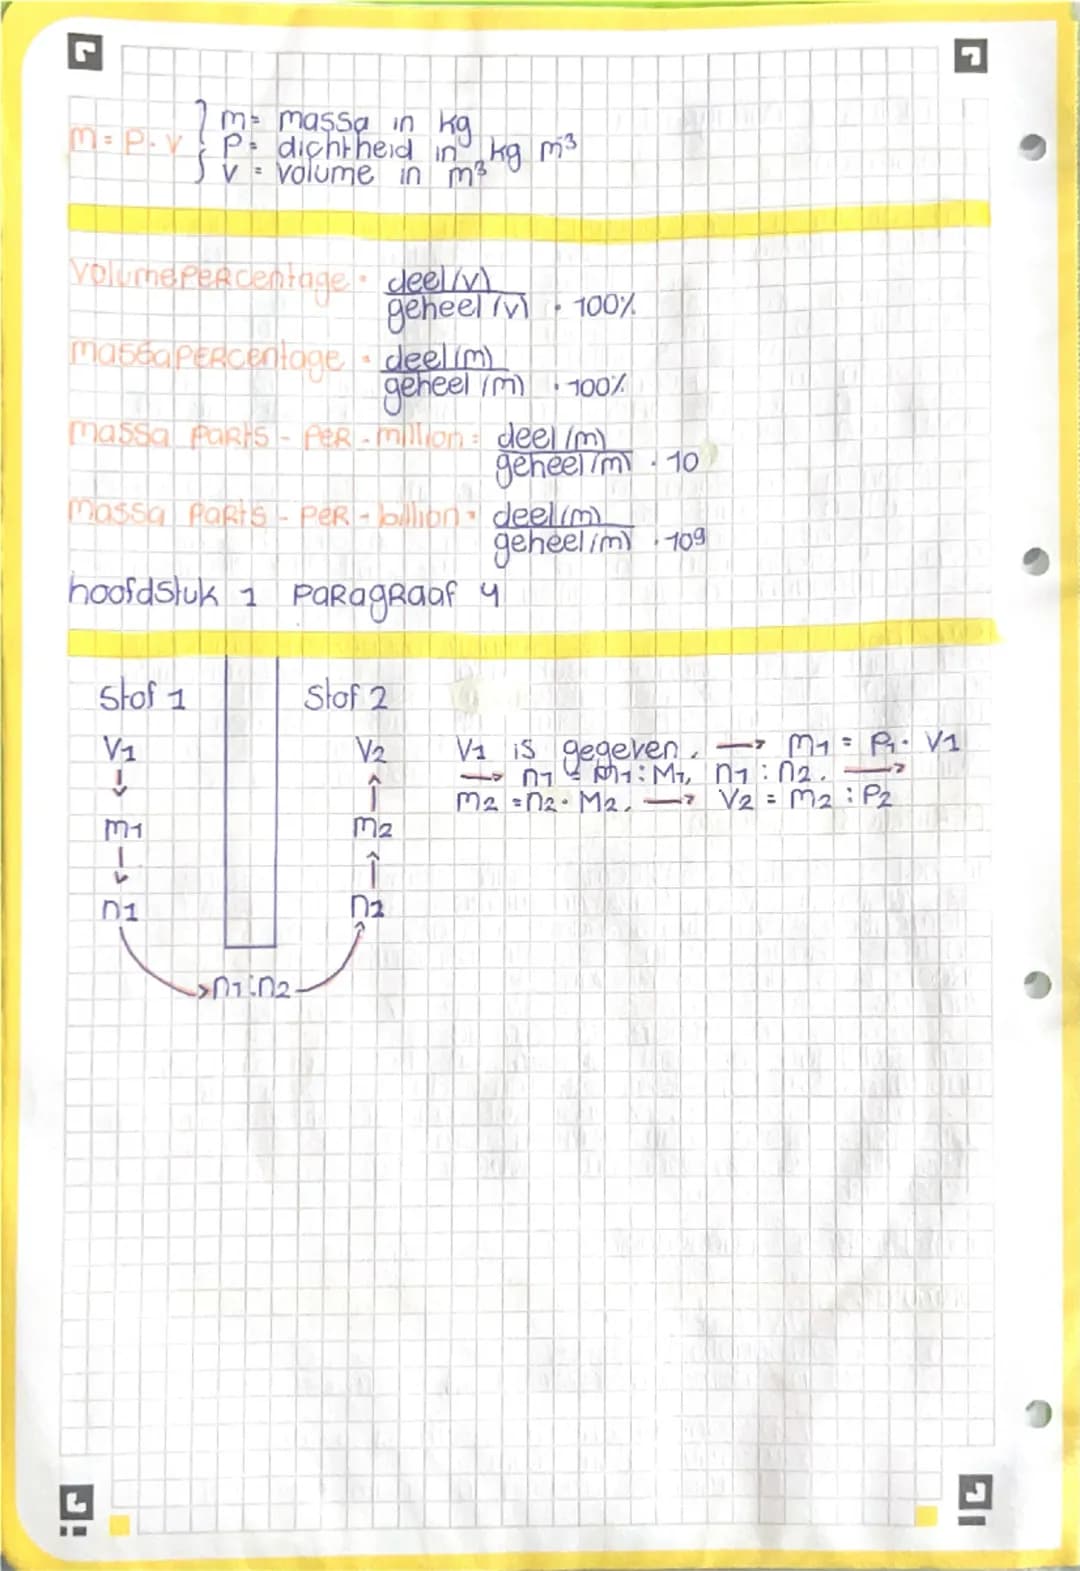 m = ρ . v { m = massa in kg
ρ = dichtheid in kg m⁻³
v = volume in m³
volumepercentage = deel (v) / geheel (v) · 100%
massapercentage = deel (m) / geheel (m) · 100%
massa parts - per - million = deel (m) / geheel (m) · 10
massa parts - per - billion = deel (m) / geheel (m) · 10⁹
hoofdstuk 1 paragraaf 4
Stof 1 Stof 2
V1 V2
m1 m2
n1 n2
n1:n2
V1 is gegeven. → m1 = ρ1 · V1
→ n1 = m1 : M1, n1 : n2. →
m2 = n2 · M2. → V2 = m2 : ρ2